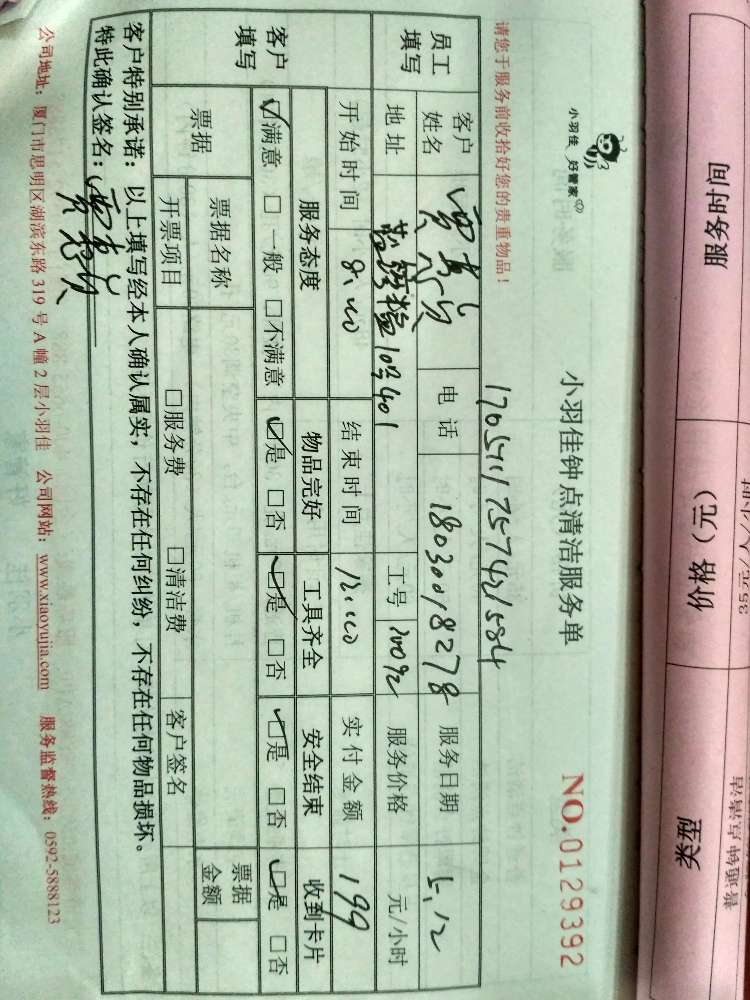 小羽佳 好管家
小羽佳钟点清洁服务单
NO.0129392
请您于服务前收拾好您的贵重物品！
员工填写
客户姓名
电话
18030018278
服务日期
5.12
地址
10号401
工号
服务价格
元/小时
开始时间
8:00
结束时间
12:00
实付金额
199
客户填写
服务态度
物品完好
工具齐全
安全结束
收到卡片
☑满意 □一般 □不满意
☑是 □否
☑是 □否
☑是 □否
☑是 □否
票据
票据名称
票据金额
开票项目
□服务费
□清洁费
客户签名
客户特别承诺：以上填写经本人确认属实，不存在任何纠纷，不存在任何物品损坏。
特此确认签名：
公司地址：厦门市思明区湖滨东路 319 号 A 幢 2 层小羽佳 公司网站：www.xiaoyujia.com 服务监督热线：0592-5888123
服务时间
价格（元）
类型